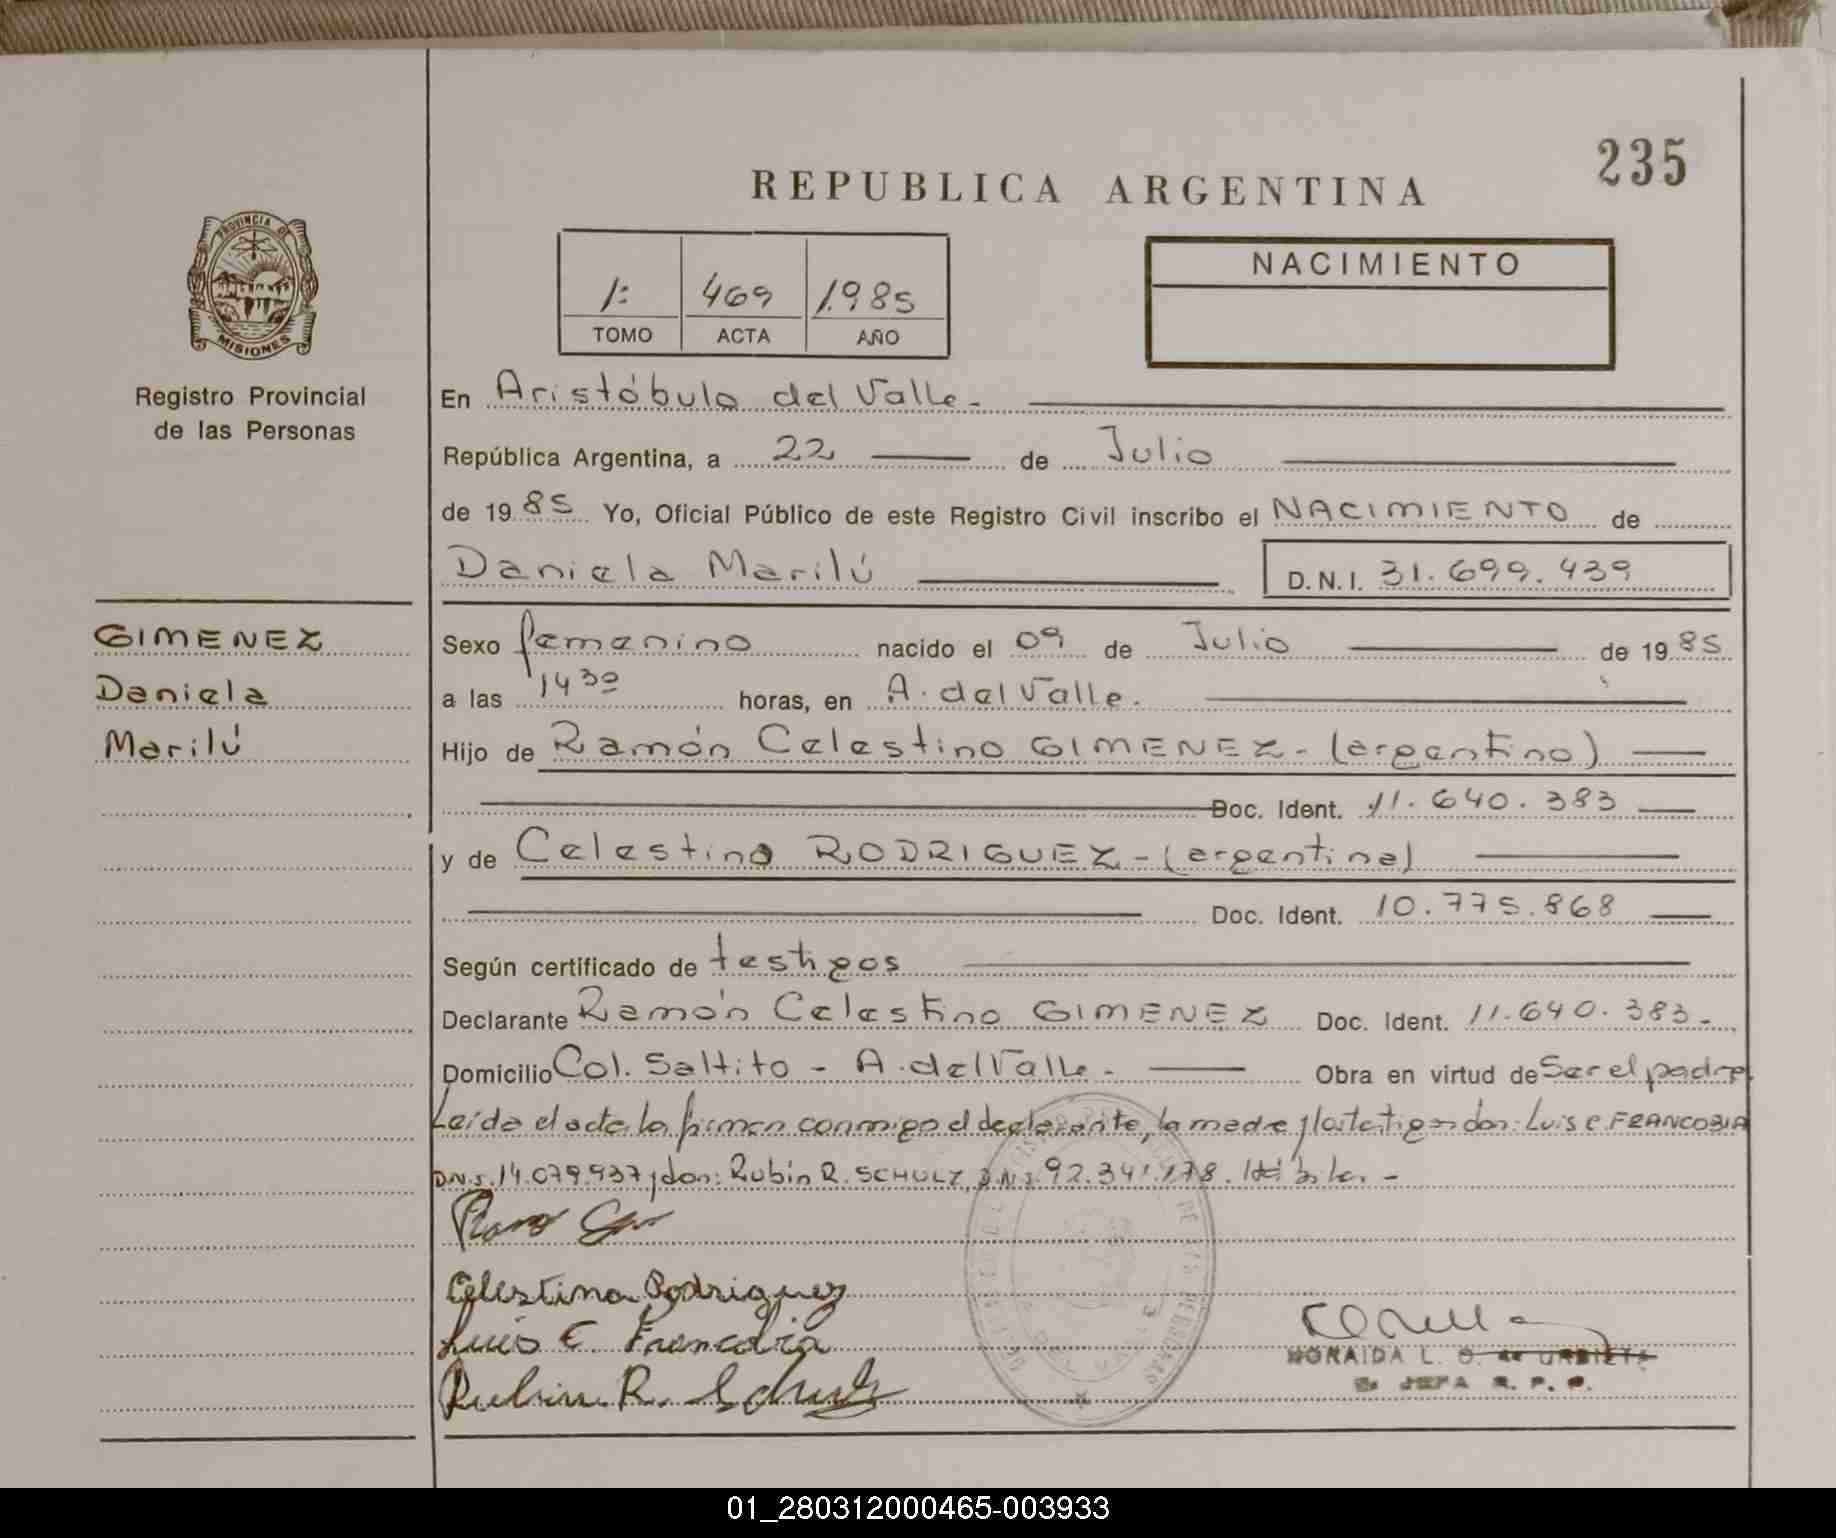 235
REPUBLICA ARGENTINA
PROVINCIA DE
MISIONES
Registro Provincial
de las Personas
1: 469 1.985
TOMO ACTA AÑO
NACIMIENTO
En Aristóbulo del Valle.-
República Argentina, a 22 de Julio
de 1985 Yo, Oficial Público de este Registro Civil inscribo el NACIMIENTO de
Daniela Marilú D.N.I. 31.699.439
GIMENEZ
Daniela
Marilú
Sexo femenino nacido el 09 de Julio de 1985
a las 14 30 horas, en A. del Valle.
Hijo de Ramón Celestino GIMENEZ - (argentino)
Doc. Ident. 11.640.383
y de Celestina RODRIGUEZ - (argentina)
Doc. Ident. 10.775.868
Según certificado de testigos
Declarante Ramón Celestino GIMENEZ Doc. Ident. 11.640.383.-
Domicilio Col. Saltito - A. del Valle.- Obra en virtud de Ser el padre
Leída el acta la firman conmigo el declarante, la madre y los testigos don: Luis C. FRANCOBIA
D.N.I. 14.079.937 y don: Rubín R. SCHULZ, D.N.I. 92.341.178. Hábiles.-
Celestina Rodriguez
Luis C. Francobia
Rubin R. Schulz
L. O. de URBIETA
JEFA R. P. P.
01_280312000465-003933